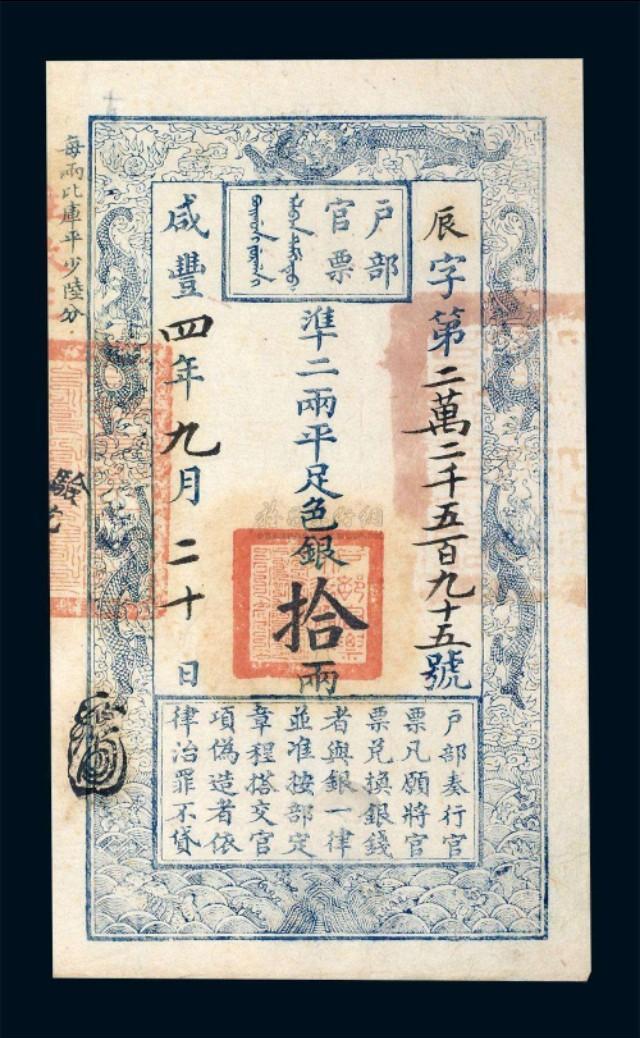 戶部
官票
辰字第二萬二千五百九十五號
準二兩平足色銀拾兩
咸豐四年九月二十日
戶部奏行官
票凡願將官
票兌換銀錢
者與銀一律
並准按部定
章程搭交官
項偽造者依
律治罪不貸
每兩比庫平少陸分